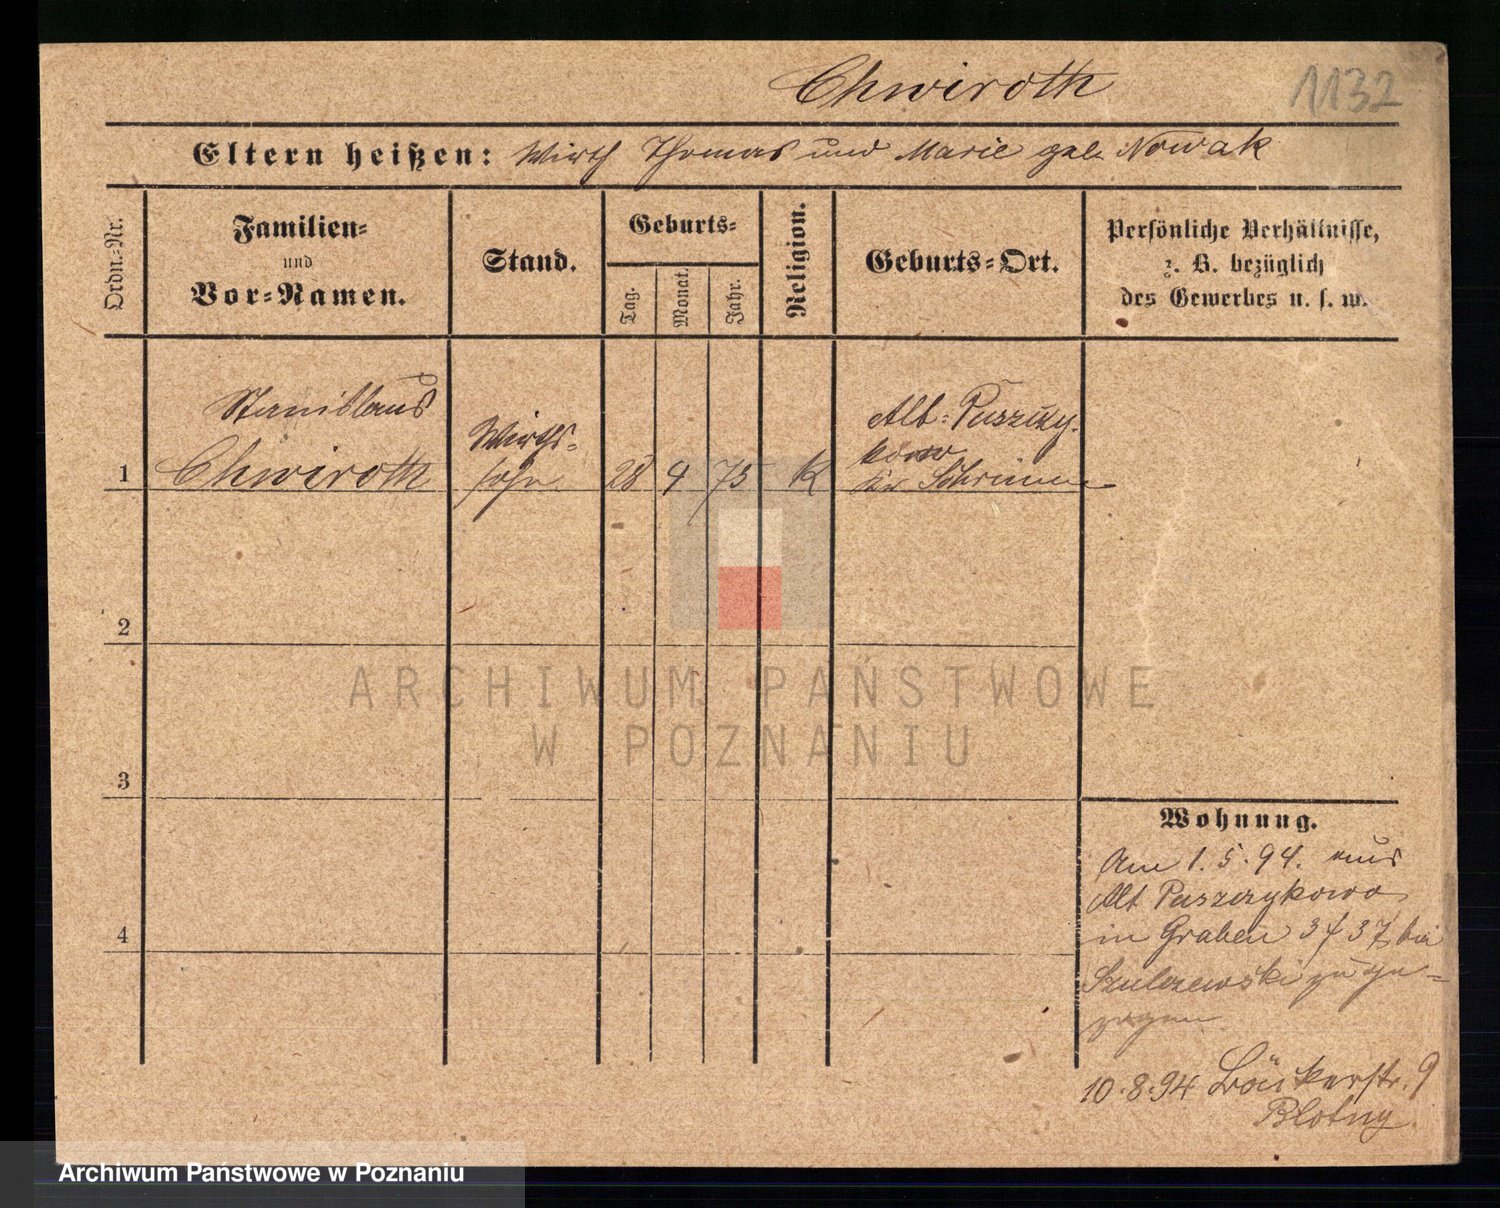 Chwiroth 1132
Eltern heißen: Wirth Thomas und Marie geb. Nowak
Ordn.-Nr.
Familien-
und
Vor-Namen.
Stand.
Geburts-
Tag.
Monat.
Jahr.
Religion.
Geburts-Ort.
Persönliche Verhältnisse,
z. B. bezüglich
des Gewerbes u. s. w.
1
Stanislaus
Chwiroth
Wirths-
sohn
28 9 75 K
Alt-Puszczy-
kowo
Schrimm
2
3
4
Wohnung.
Am 1.5.94. aus
Alt Puszczykowo
in Graben 37 bei
Szulczewski zuge-
zogen
10.8.94 Bäckerstr. 9
Blotny
ARCHIWUM PAŃSTWOWE
W POZNANIU
Archiwum Państwowe w Poznaniu